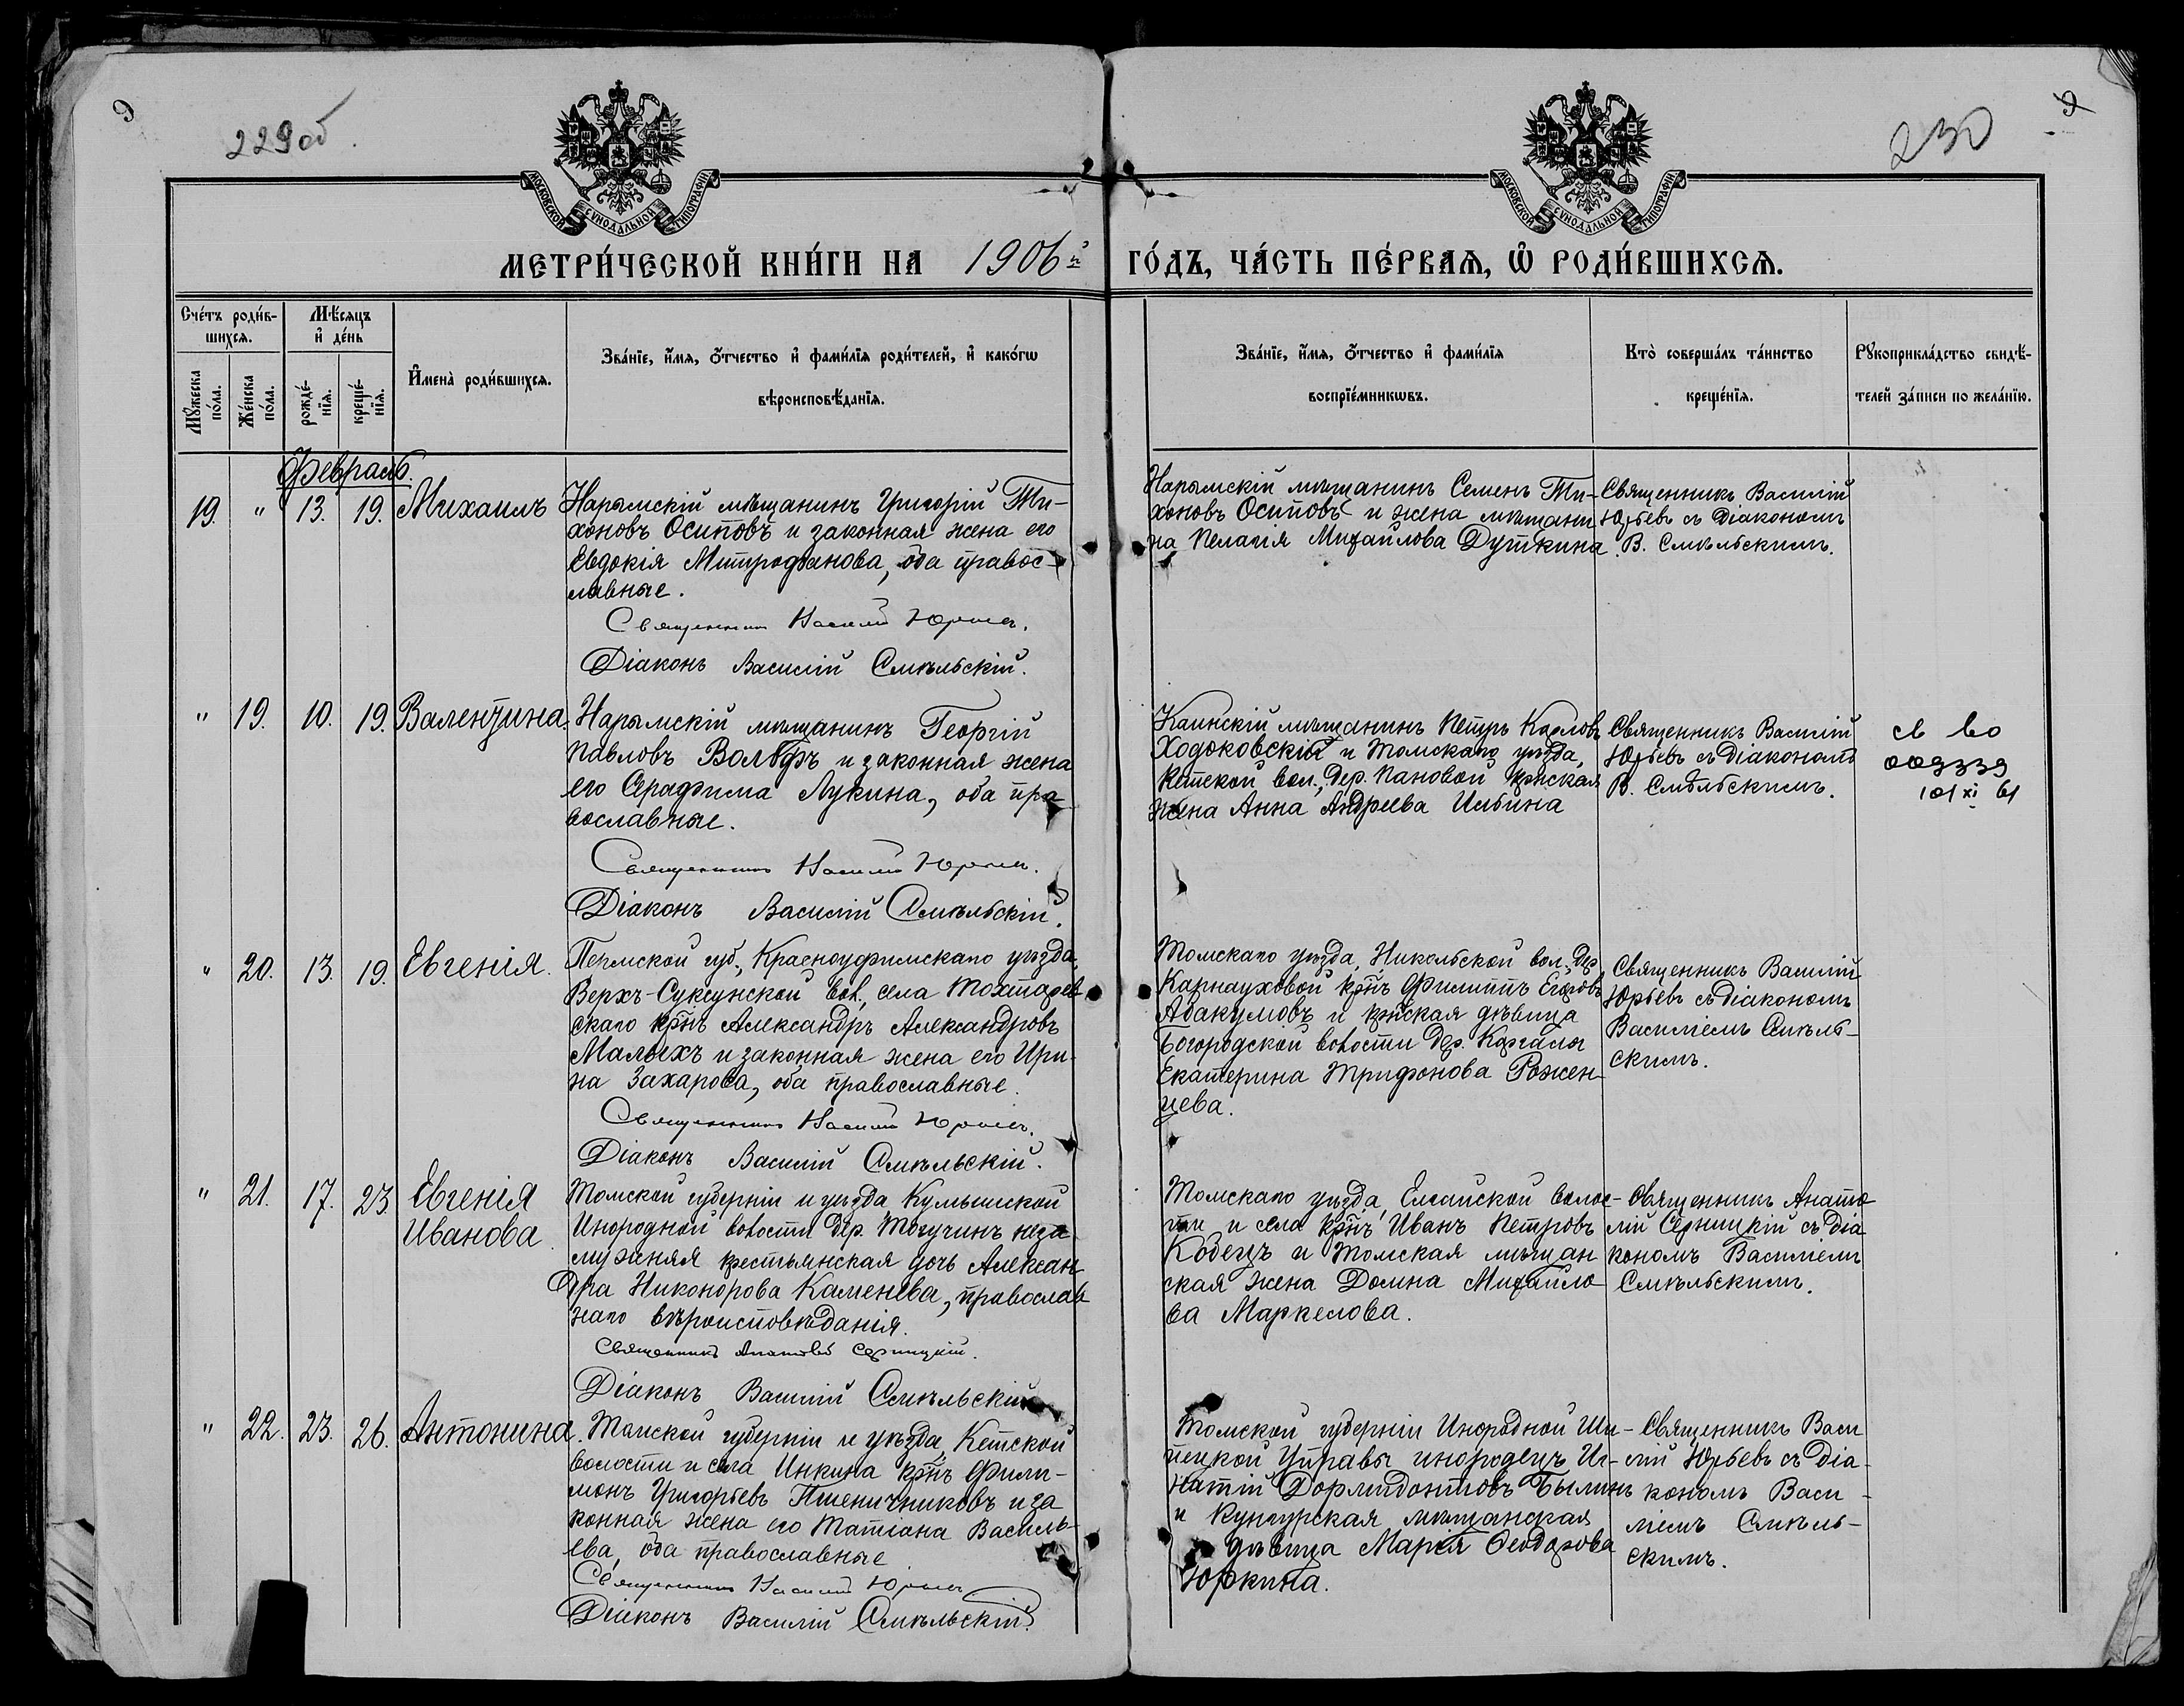 9
229об.
230
9
МОСКОВСКОЙ СѴНОДАЛЬНОЙ ТИПОГРАФІИ
МОСКОВСКОЙ СѴНОДАЛЬНОЙ ТИПОГРАФІИ
МЕТРИ́ЧЕСКОЙ КНИ́ГИ НА 1906й ГО́ДЪ, ЧА́СТЬ ПЕ́РВАѦ, Ѡ҆ РОДИ́ВШИХСѦ.
Сче́тъ роди́в-
шихсѧ.
Мꙋ́жеска по́ла.
Же́нска по́ла.
Мѣ́сѧцъ
и҆ де́нь
рожде́-
нїѧ.
креще́-
нїѧ.
И҆мена̀ роди́вшихсѧ.
Зва́нїе, и҆́мѧ, ѻ҆́тчество и҆ фами́лїѧ роди́телей, и҆ како́гѡ
вѣроисповѣ́данїѧ.
Зва́нїе, и҆́мѧ, ѻ҆́тчество и҆ фами́лїѧ
воспрїе́мникѡвъ.
Кто̀ соверша́лъ та́инство
креще́нїѧ.
Рꙋкоприкла́дство свидѣ́-
телей за́писи по жела́нїю.
Февраль.
19. " 13. 19. Михаилъ
Нарымскій мѣщанинъ Григорій Ти-
хоновъ Осиповъ и законная жена его
Евдокія Митрофанова, оба правос-
лавные.
Священникъ Василій Юрьевъ.
Діаконъ Василій Смѣльскій.
Нарымскій мѣщанинъ Семенъ Ти-
хоновъ Осиповъ и жена мѣщани
на Пелагія Михайлова Душкина.
Священникъ Василій
Юрьевъ съ Діакономъ
В. Смѣльскимъ.
" 19. 10. 19. Валентина.
Нарымскій мѣщанинъ Георгій
Павловъ Вольфъ и законная жена
его Серафима Лукина, оба пра-
вославные.
Священникъ Василій Юрьевъ.
Діаконъ Василій Смѣльскій.
Каинскій мѣщанинъ Петръ Карловъ
Ходоковскій и Томскаго уѣзда,
Кетской вол., дер. Пановой крнская
жена Анна Андреева Ильина
Священникъ Василій
Юрьевъ съ Діакономъ
В. Смѣльскимъ.
св во
009339
101 XI 61
" 20. 13. 19. Евгенія.
Пермской губ., Красноуфимскаго уѣзда,
Верхъ-Суксунской вол., села Тохтарев-
скаго крнъ Александръ Александровъ
Малыхъ и законная жена его Ири-
на Захарова, оба православные.
Священникъ Василій Юрьевъ.
Діаконъ Василій Смѣльскій.
Томскаго уѣзда, Никольской вол., дер.
Карнауховой крнъ Филиппъ Егоровъ
Абакумовъ и крнская дѣвица
Богородской волости дер. Каргалы
Екатерина Трифонова Рожен-
цева.
Священникъ Василій
Юрьевъ съ діакономъ
Василіемъ Смѣль-
скимъ.
" 21. 17. 23. Евгенія
Иванова.
Томской губерніи и уѣзда Кумышской
Инородной волости дер. Могучинъ неза
мужняя крестьянская дочь Алексан-
дра Никонорова Каменева, православ
наго вѣроисповѣданія.
Священникъ Анатолій Серницкій.
Діаконъ Василій Смѣльскій
Томскаго уѣзда, Елгайской волос-
ти и села крнъ Иванъ Петровъ
Кобецъ и Томская мѣщан
ская жена Домна Михайло-
ва Маркелова.
Священникъ Анато
лій Серницкій съ Діа
кономъ Василіемъ
Смѣльскимъ.
" 22. 23. 26. Антонина.
Томской губерніи и уѣзда, Кетской
волости и села Инкина крнъ Фили-
монъ Григорьевъ Пшеничниковъ и за
конная жена его Татіана Василь-
ева, оба православные
Священникъ Василій Юрьевъ
Діаконъ Василій Смѣльскій.
Томской губерніи Инородной Ши-
пецкой Управы инородецъ Иг-
натій Дормидонтовъ Былинъ
и Кунгурская мѣщанская
дѣвица Марія Ѳеодорова
Юркина.
Священникъ Васи
лій Юрьевъ съ Діа-
кономъ Васи-
ліемъ Смѣль-
скимъ.